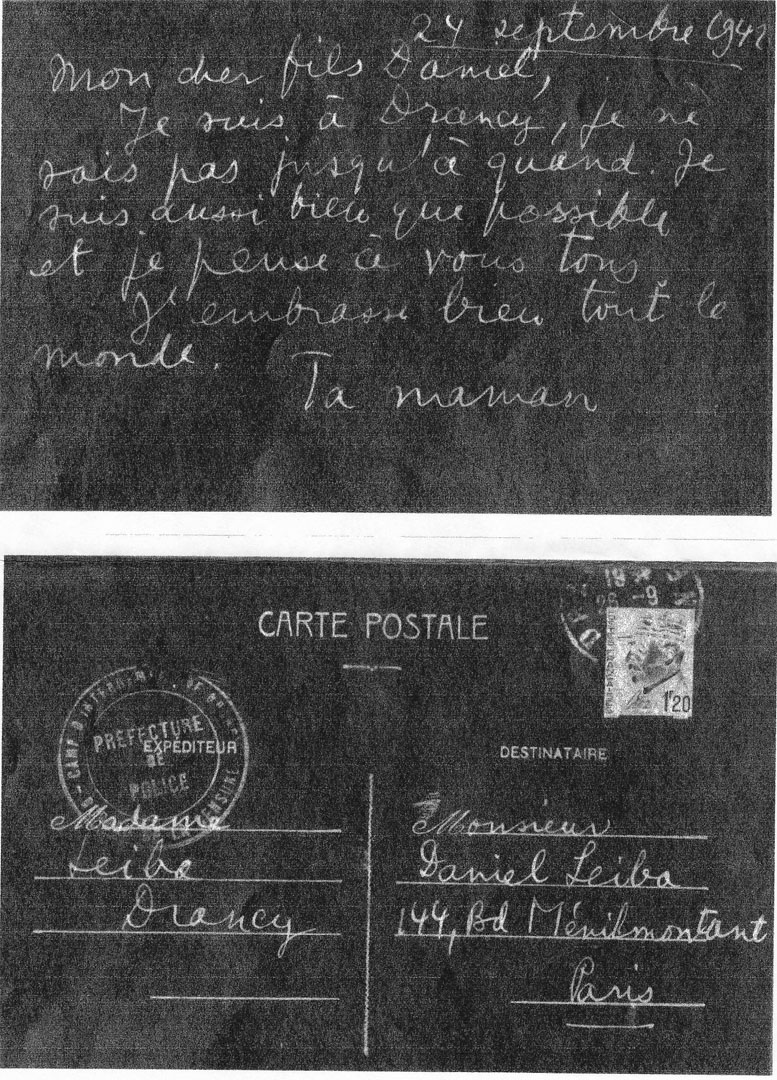 24 septembre 1942
Mon cher fils Daniel,
Je suis à Drancy, je ne
sais pas jusqu'à quand. Je
suis aussi bien que possible
et je pense à vous tous
J'embrasse bien tout le
monde.
Ta maman
CARTE POSTALE
1F20
CAMP D'INTERNEMENT
CENSURE
PREFECTURE
DE
POLICE
EXPÉDITEUR
Madame
Leiba
Drancy
DESTINATAIRE
Monsieur
Daniel Leiba
144, Bd Ménilmontant
Paris